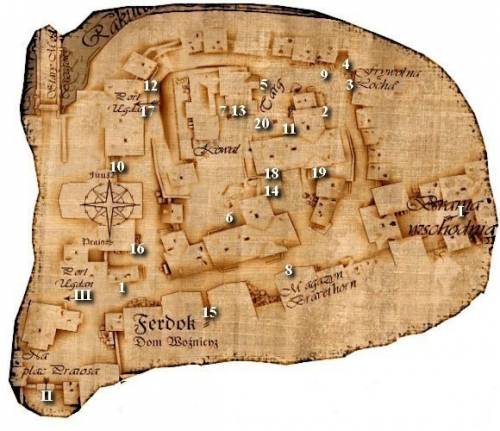 Rakula
Stary Most
12
Port
Ugdan
17
9
4
Frywolna
Locha
3
5
Targ
7
13
20
11
2
Kowal
10
18
14
19
6
Brama
wschodnia
I
16
Praios
Port
Ugdan
III
1
8
Magazyn
Ferdok
15
Dom Woźnicy
Na
plac Praiosa
II